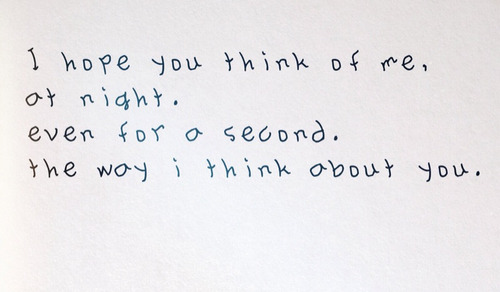 I hope you think of me,
at night.
even for a second.
the way i think about you.